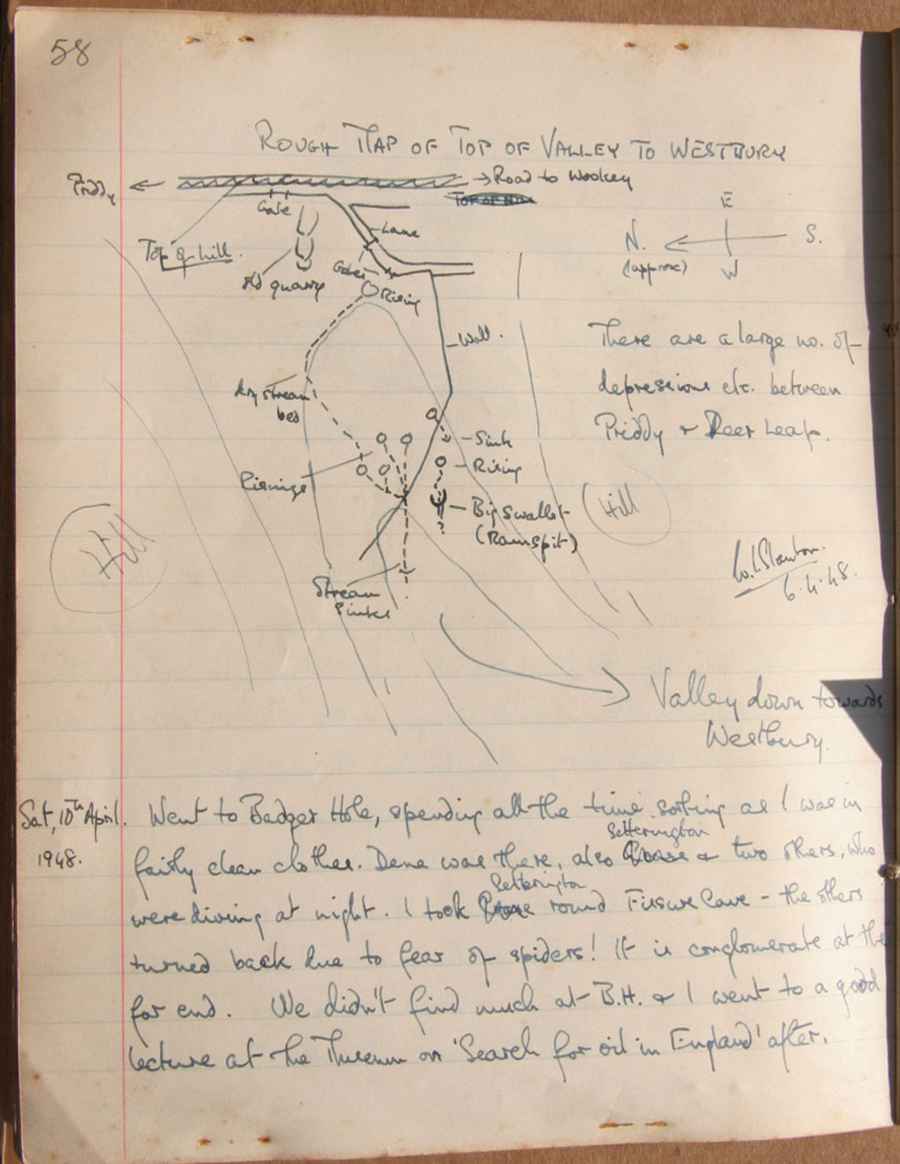 58
ROUGH MAP OF TOP OF VALLEY TO WESTBURY
Priddy
Road to Wookey
Gate
Lane
Top of hill.
Old quarry
Gates
Rising
E
N.
S.
(approx)
W
Wall.
There are a large no. of
depressions etc. between
Priddy & Deer Leap.
dry stream
bed
Sink
Rising
Risings
Big swallet
(Ramspit)
Hill
Hill
W.I. Stanton.
6.4.48.
Stream
Sinks
Valley down towards
Westbury.
Sat, 10th April. Went to Badger Hole, spending all the time sorting as I was in
1948.
Setterington
fairly clean clothes. Dena was there, also & two others, who
Setterington
were diving at night. I took round Fissure Cave - the others
turned back due to fear of spiders! It is conglomerate at the
far end. We didn't find much at B.H. & I went to a good
lecture at the Museum on 'Search for oil in England' after.